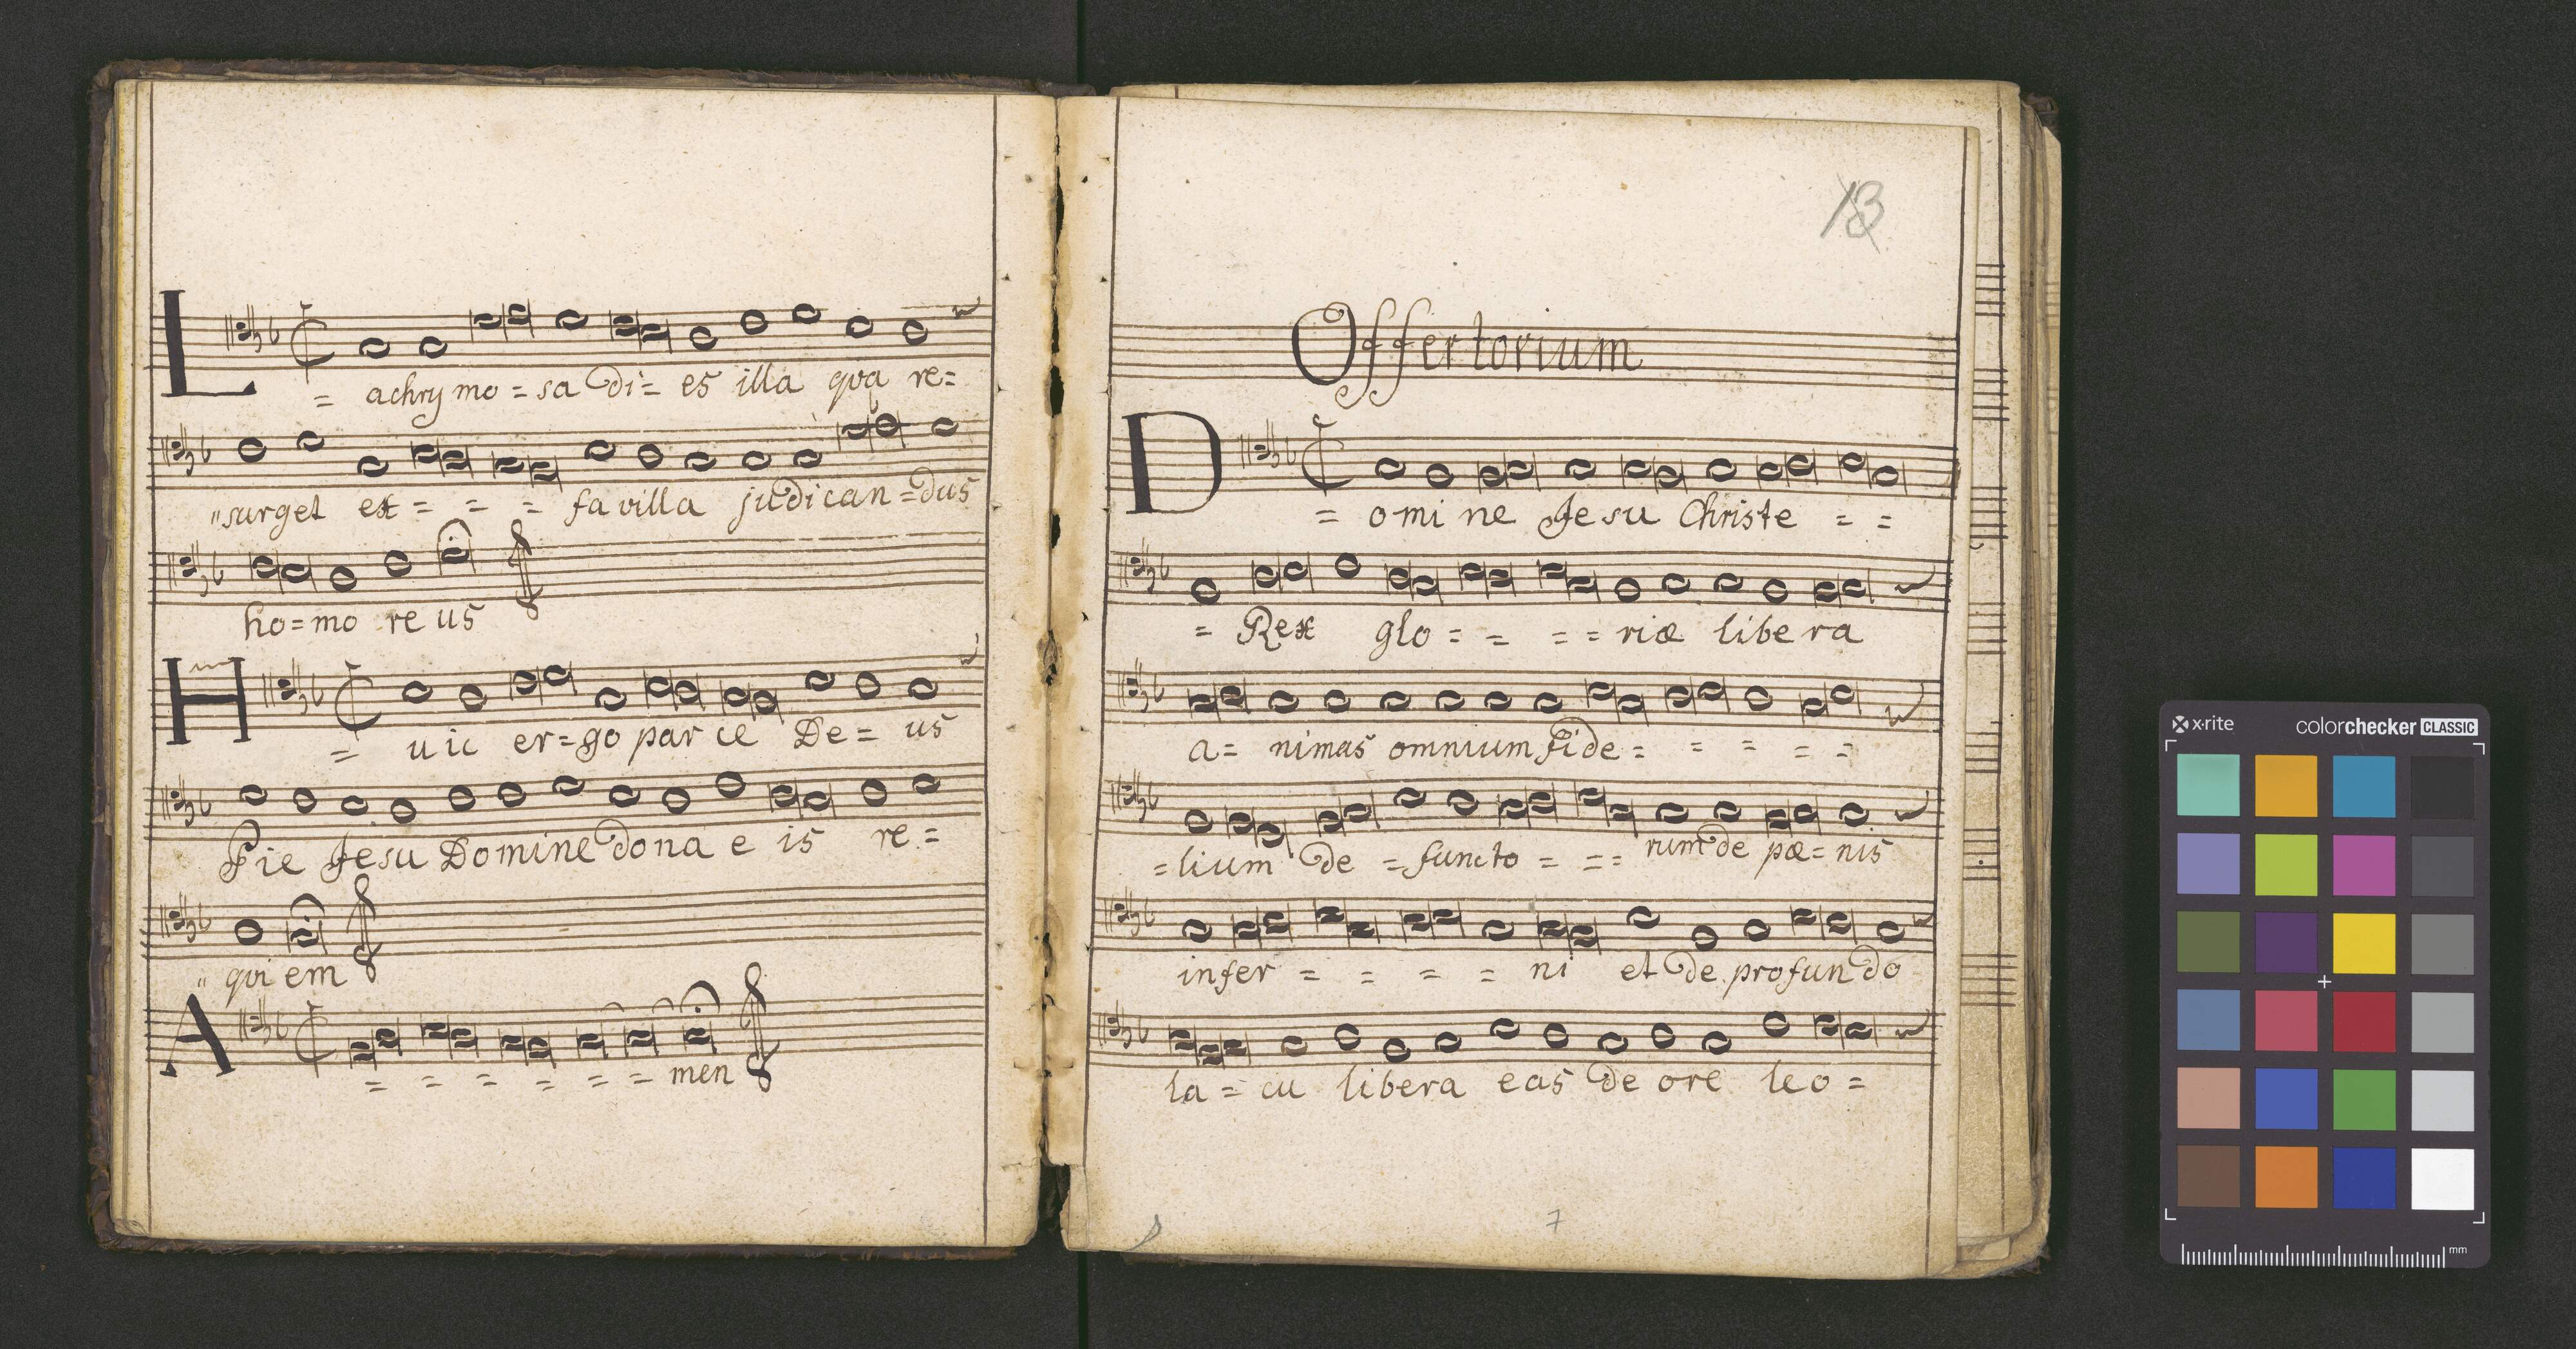 L = achry mo = sa di = es illa qva re =
"surget ex = = = favilla judican = dus
ho = mo re us
H = uic er = go par ce De = us
Pie Jesu Domine dona e is re. =
" qvi em
A = = = = = = men
13
Offertorium
D = omi ne Jesu Christe = =
= Rex glo = = = = riæ libera
a = nimas omnium fide = = = = =
= lium de = functo = = = rum de pæ = nis
infer = = = = ni et de profundo
la = cu libera eas de ore leo =
7
x·rite colorchecker CLASSIC
mm